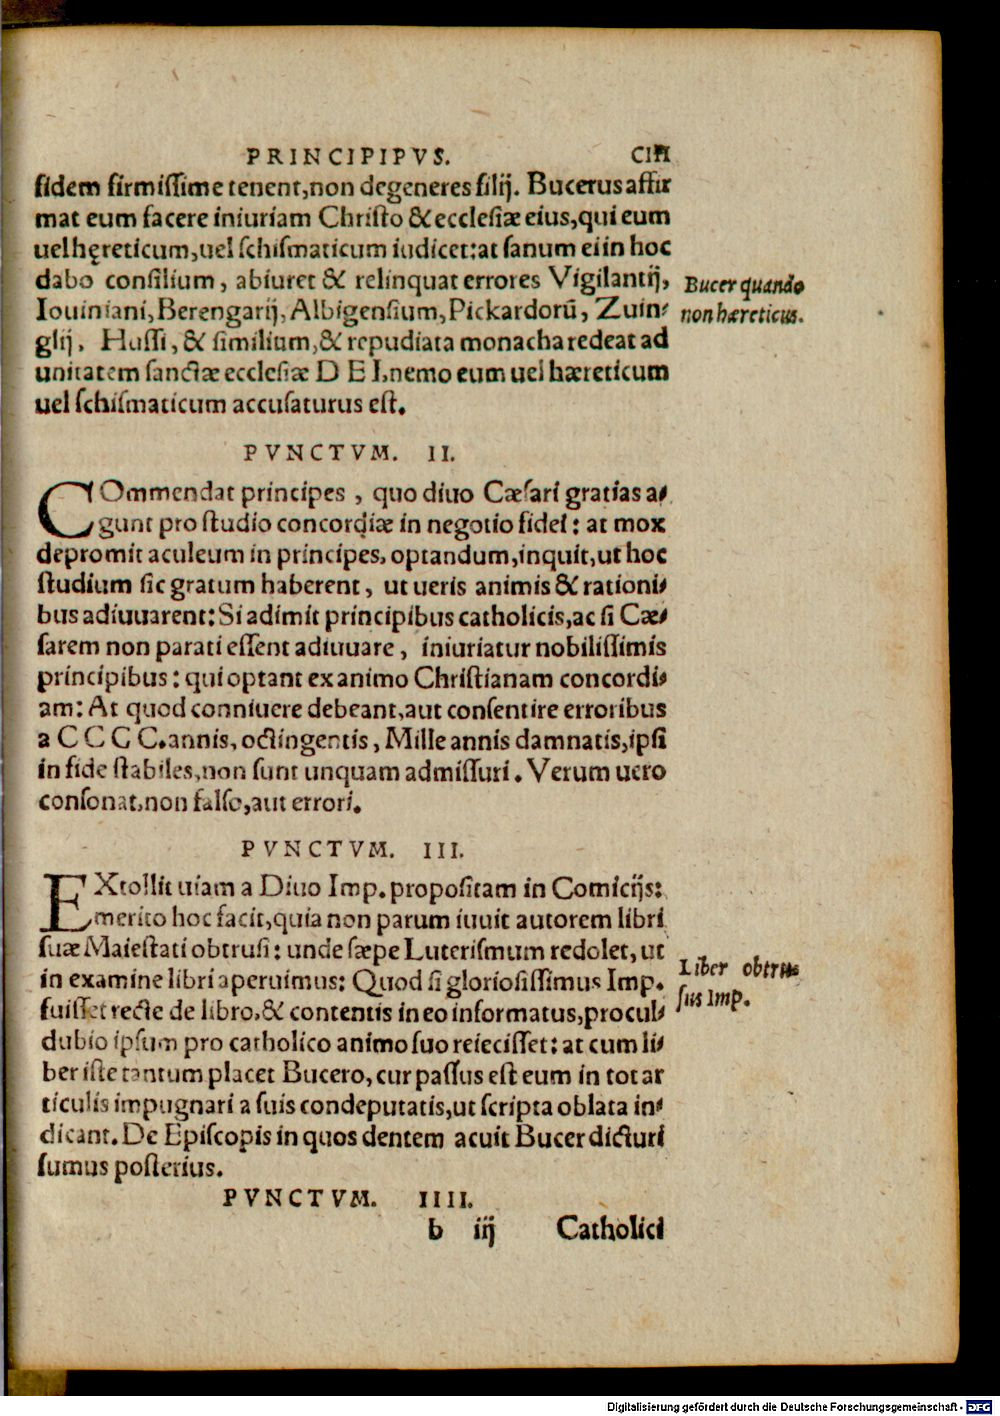 PRINCIPIPVS. CIII
fidem firmiſſime tenent,non degeneres filij. Bucerus affir
mat eum facere iniuriam Chriſto & eccleſiæ eius,qui eum
uel hęreticum,uel ſchiſmaticum iudicet:at ſanum ei in hoc
dabo conſilium, abiuret & relinquat errores Vigilantij,
Bucer quando
Iouiniani,Berengarij,Albigenſium,Pickardorũ, Zuin-
non hæreticus.
glij, Huſſi, & ſimilium,& repudiata monacha redeat ad
unitatem ſanctæ eccleſiæ DEI,nemo eum uel hæreticum
uel ſchiſmaticum accuſaturus eſt.
PVNCTVM. II.
COmmendat principes, quo diuo Cæſari gratias a-
gunt pro ſtudio concordiæ in negotio fidei: at mox
depromit aculeum in principes, optandum,inquit,ut hoc
ſtudium ſic gratum haberent, ut ueris animis & rationi-
bus adiuuarent:Si adimit principibus catholicis,ac ſi Cæ-
ſarem non parati eſſent adiuuare, iniuriatur nobiliſſimis
principibus: qui optant ex animo Chriſtianam concordi-
am: At quod conniuere debeant,aut conſentire erroribus
a CCCC.annis, octingentis, Mille annis damnatis,ipſi
in fide ſtabiles,non ſunt unquam admiſſuri. Verum uero
conſonat,non falſo,aut errori.
PVNCTVM. III.
EXtollit uiam a Diuo Imp.propoſitam in Comicijs:
merito hoc facit,quia non parum iuuit autorem libri
ſuæ Maieſtati obtruſi: unde ſæpe Luteriſmum redolet, ut
Liber obtru-
in examine libri aperuimus: Quod ſi glorioſiſſimus Imp.
ſus Imp.
fuiſſet recte de libro,& contentis in eo informatus,procul-
dubio ipſum pro catholico animo ſuo reieciſſet: at cum li-
ber iſte tantum placet Bucero, cur paſſus eſt eum in tot ar
ticulis impugnari a ſuis condeputatis,ut ſcripta oblata in-
dicant. De Epiſcopis in quos dentem acuit Bucer dicturi
ſumus poſterius.
PVNCTVM. IIII.
b iij Catholici
Digitalisierung gefördert durch die Deutsche Forschungsgemeinschaft - DFG